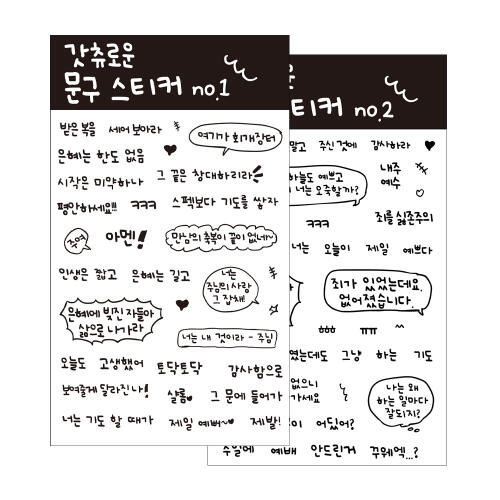 갓츄로운
문구 스티커 no.1
받은 복을 세어 보아라
여기가 회개장터
은혜는 한도 없음
시작은 미약하나 그 끝은 창대하리라
평안하세요!!! ㅋㅋㅋ 스펙보다 기도를 쌓자
주여 아멘! 만남의 축복이 끝이 없네~
인생은 짧고 은혜는 길고
너는
주님의 사랑
그 잡채!!
은혜에 빚진 자들아
삶으로 나가라
너는 내 것이라 - 주님
오늘도 고생했어 토닥토닥 감사함으로
보여줄게 달라진 나! 샬롬 그 문에 들어가
너는 기도 할 때가 제일 예뻐 제발!
로운
티커 no.2
말고 주신 것에 감사하라
하늘도 예쁘고
너는 오죽할까?
내주
예수
ㅋㅋㅋ 죄를 싫존주의
너는 오늘이 제일 예쁘다
죄가 있었는데요.
없어졌습니다.
ㅎㅎㅎ ㅠㅠ ^^
였는데도 그냥 하는 기도
없으니
가세요
나는 왜
하는 일마다
잘되지?
어딨어?
주일에 예배 안드린거 꾸웨엑...?